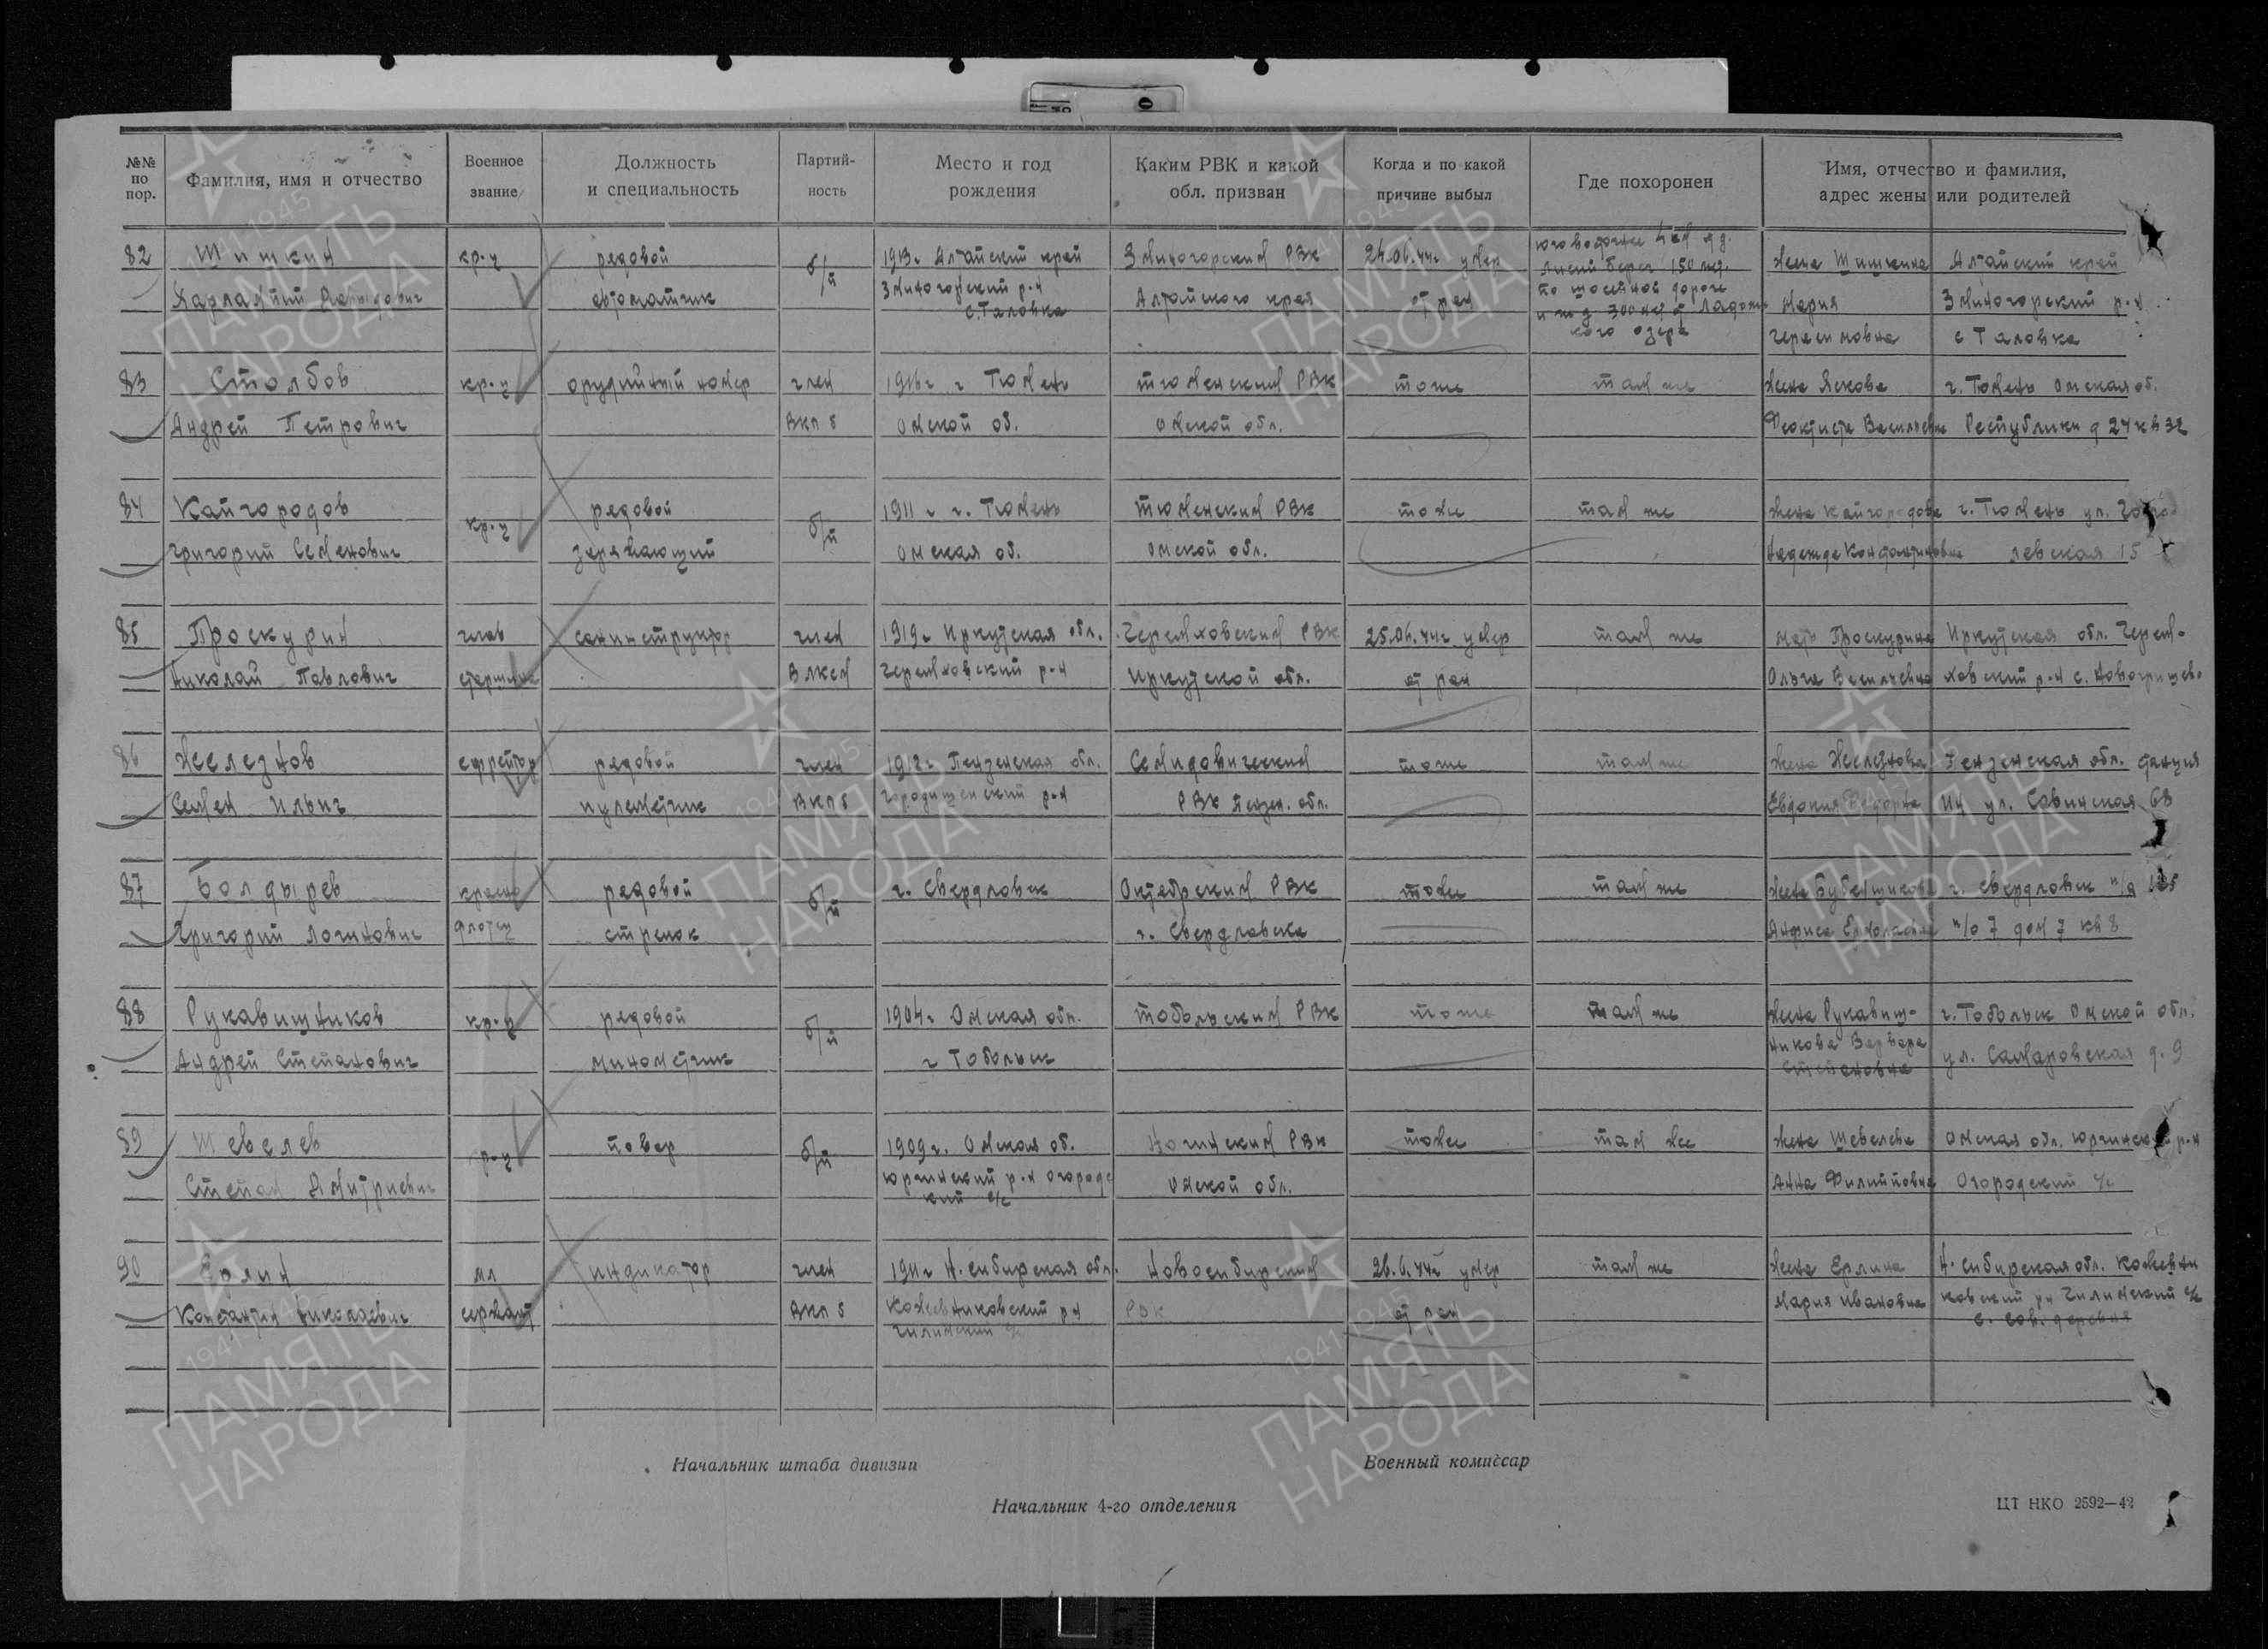 №№ по пор.
Фамилия, имя и отчество
Военное звание
Должность и специальность
Партий-ность
Место и год рождения
Каким РВК и какой обл. призван
Когда и по какой причине выбыл
Где похоронен
Имя, отчество и фамилия, адрес жены или родителей
82 Шишкин кр-ц рядовой б/п 1913г Алтайский край Зминогорским РВК 24.06.44г умер жена Шишкина Алтайский край
автоматчик Зминогорский р-н Алтайского края от ран Мария Зминогорский р-н
с. Таловка по шосейной дороге
300 мт Ладож
кого озера Герасимовна с Таловка
83 Столбов кр-ц орудийный номер член г Тюмень тюменским РВК тоже там же жена Яскова г. Тюмень Омская об.
Андрей Петрович ВКП б Омской об. Омской обл. Феоктиста Васильевна Республики д 24 кв 32
84 Кайгородов кр-ц рядовой б/п 1911 г г. Тюмень тюменским РВК тоже там же жена Кайгородова г. Тюмень ул.
Григорий Семенович заряжающий Омская об. Омской обл. Надежда Константиновна левская 15
85 Проскурин член санинструктор член 1919г Иркутская обл. Черемховским РВК 25.06.44г умер там же мать Проскурина Иркутская обл. Черем-
Николай Павлович старшина ВЛКСМ Черемховский р-н Иркутской обл. от ран Ольга Васильевна ховский р-н с.
86 Железнов ефрейтор рядовой член 1912г Пензенская обл. тоже там же жена Железнова Пензенская обл. станция
Семен Ильич пулеметчик ВКП б Городищенский р-н РВК Пензен. обл. Евдокия ул. Савинская 68
87 Болдырев красно рядовой б/п г. Свердловск Октябрским РВК тоже там же жена г. Свердловск п/я
Григорий Логинович флотец стрелок г. Свердловска Анфиса п/о 7 дом 7 кв 8
88 Рукавишников кр-ц рядовой б/п 1904г Омская обл. тобольским РВК тоже там же жена Рукавиш- г. Тобольск Омской обл.
Андрей Степанович минометчик г Тобольск никова Варвара ул. Самаровская д. 9
Степановна
89 Шевелев повар б/п 1909г. Омская об. РВК тоже там же жена Шевелева Омская обл. Юргинский р-н
Степан Дмитриевич Юргинский р-н Огородс Омской обл. Анна Филипповна Огородский с/с
кий с/с
90 Ерлин мл член 1911г Н.сибирская обл. Новосибирским 26.6.44г умер там же жена Ерлина Н.сибирская обл. Кожевни
Константин Николаевич сержант ВКП б Кожевниковский р-н РВК от ран Мария Ивановна ковский рн Чилинский с/с
Чилинский с/с
Начальник штаба дивизии
Военный комиссар
Начальник 4-го отделения
ЦТ НКО 2592—42
1941 1945
ПАМЯТЬ
НАРОДА